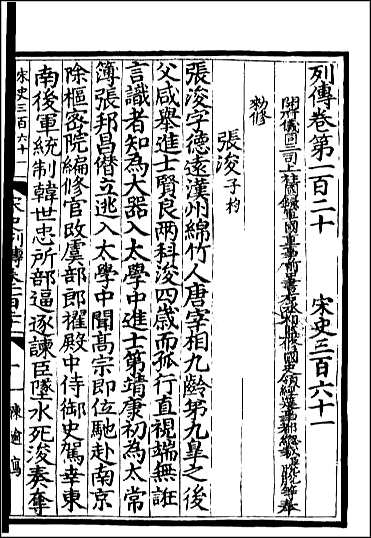 列傳卷第一百二十　宋史三百六十一
開府儀同三司上柱國錄軍國重事前中書右丞相監修國史領經筵事都總裁臣脫脫等奉
勅修
張浚子栻
張浚字德遠漢州綿竹人唐宰相九齡弟九皋之後
父咸舉進士賢良兩科浚四歲而孤行直視端無誑
言識者知為大器入太學中進士第靖康初為太常
簿張邦昌僭立逃入太學中聞高宗即位馳赴南京
除樞密院編修官改虞部郎擢殿中侍御史駕幸東
南後軍統制韓世忠所部逼逐諫臣墜水死浚奏奪
宋史三百六十一
宋史列傳卷一百二十
一
陳逾寫